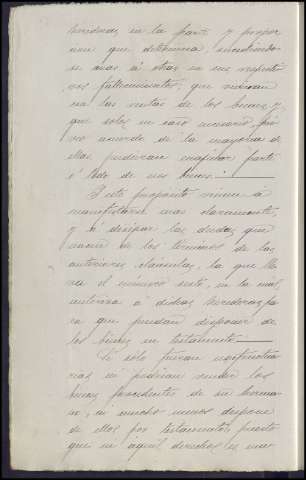 herederas en la forma y propor
cion que determina, sucediendo
se unas á otras en sus respecti
vos fallecimientos; que recibieran
las rentas de los bienes y
que solas en caso necesario, pre
vio acuerdo de la mayoria de
ellas pudieran enajenar parte
ó todo de sus bienes.
Y este propósito viene á
manifestarse mas claramente,
y á disipar las dudas que
nacen de los terminos de las
anteriores cláusulas, la que lle
va el número siete, en la cual
autoriza á dichas herederas pa
ra que puedan disponer de
los bienes en testamento
Si solo fueran usufructua
rias ni podrian vender los
bienes procedentes de su herma
no, ni mucho menos disponer
de ellos por testamento, puesto
que ni aquel derecho es mas